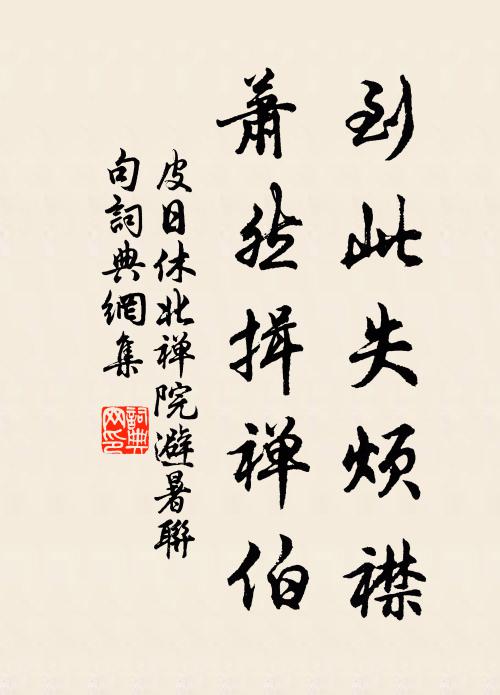 到此失烦襟
萧然揖禅伯
皮日休北禅院避暑聯
句詞典網集
詞典
网印